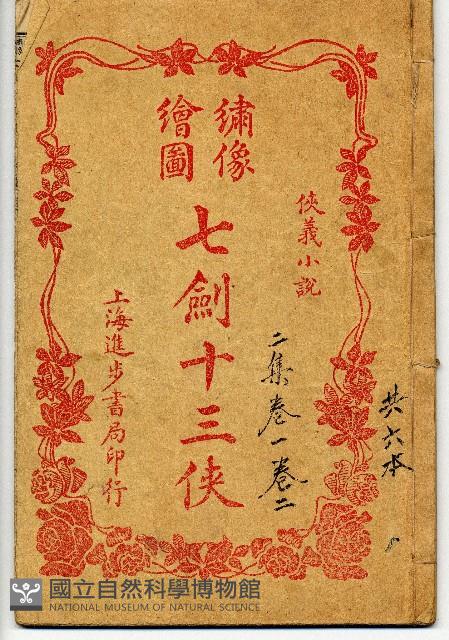 共六本
俠義小說
二集卷一卷二
繡像
繪圖
七劍十三俠
上海進步書局印行
國立自然科學博物館
NATIONAL MUSEUM OF NATURAL SCIENCE